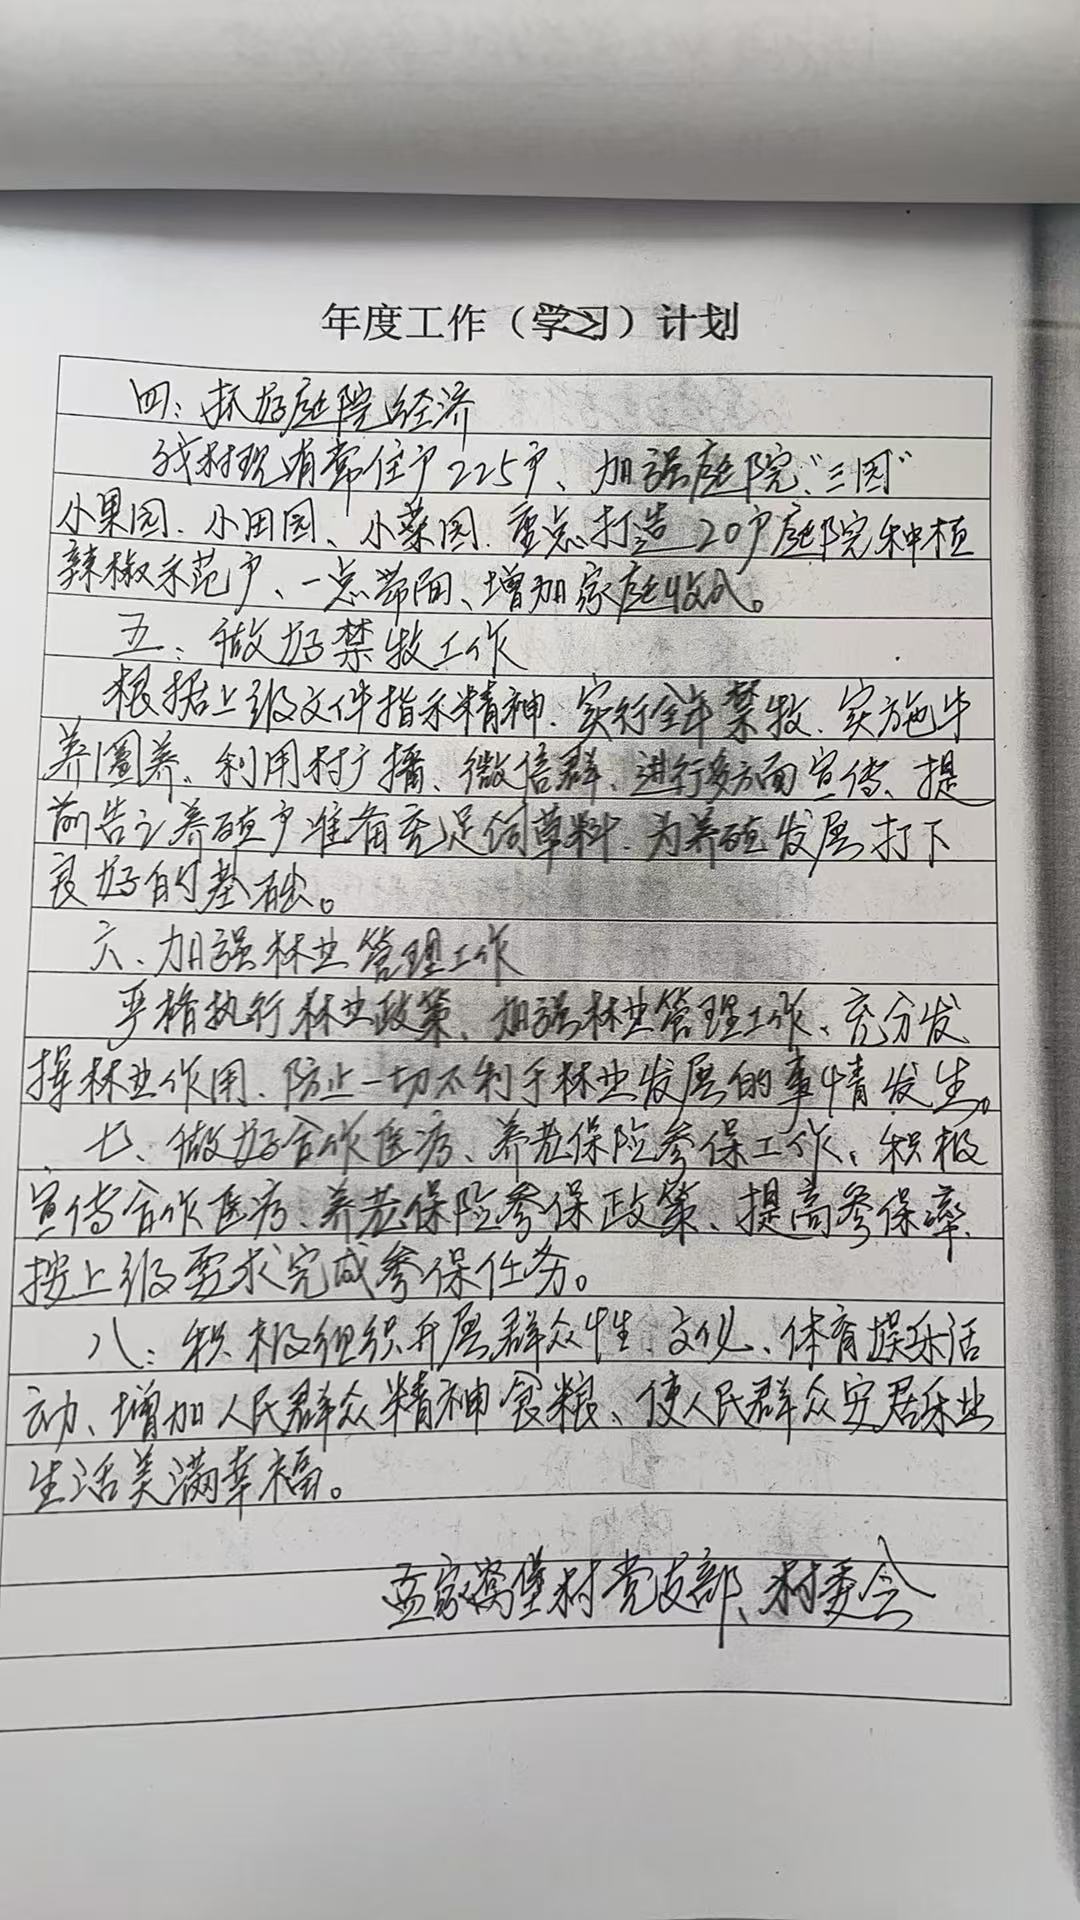 年度工作（学习）计划
四：抓好庭院经济
我村现有常住户225户、加强庭院、“三园”
小果园、小田园、小菜园、重点打造20户庭院种植
辣椒示范户、一点带面、增加家庭收入。
五：做好禁牧工作
根据上级文件指示精神、实行全年禁牧、实施牛
养圈养、利用村广播、微信群、进行多方面宣传、提
前告之养殖户准备充足饲草料、为养殖发展打下
良好的基础。
六、加强林业管理工作
严格执行林业政策、加强林业管理工作、充分发
挥林业作用、防止一切不利于林业发展的事情发生。
七、做好合作医疗、养老保险参保工作、积极
宣传合作医疗、养老保险参保政策、提高参保率、
按上级要求完成参保任务。
八：积极组织开展群众性、文化、体育娱乐活
动、增加人民群众精神食粮、使人民群众安居乐业
生活美满幸福。
孟家窝堡村党支部、村委会